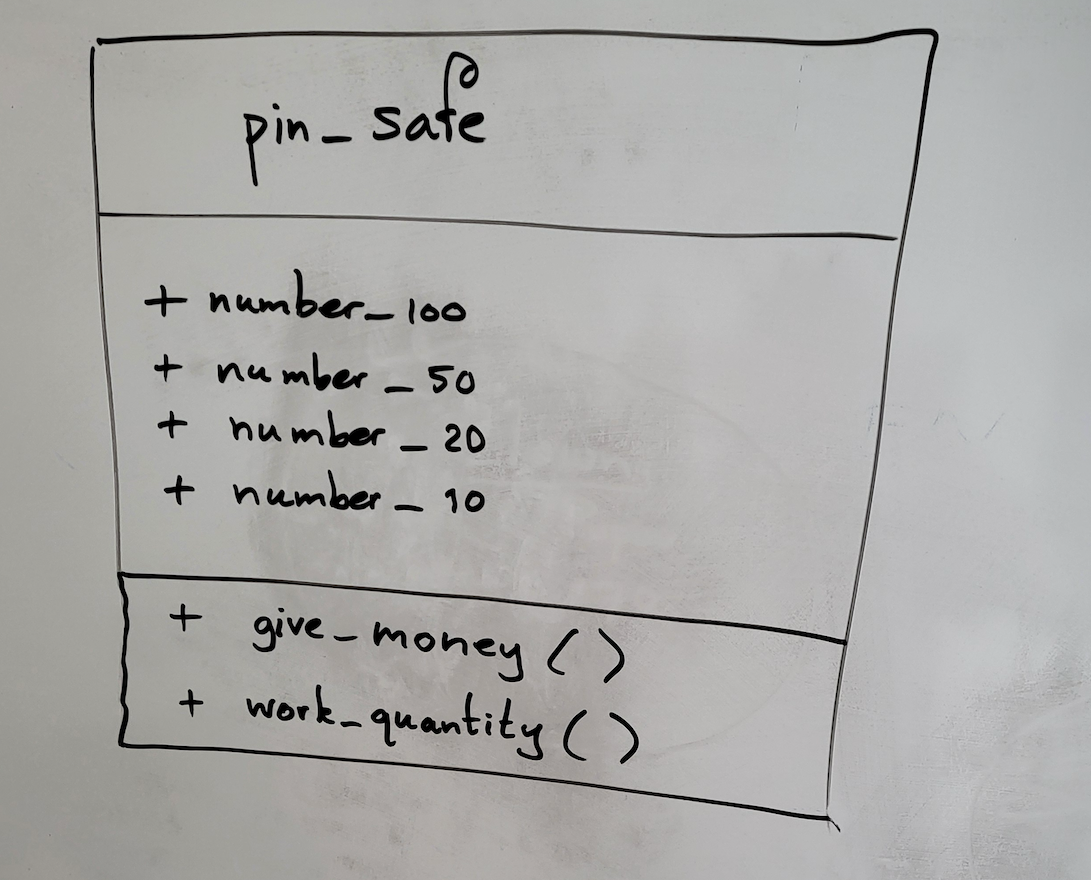 pin_safe
+ number_100
+ number_50
+ number_20
+ number_10
+ give_money()
+ work_quantity()